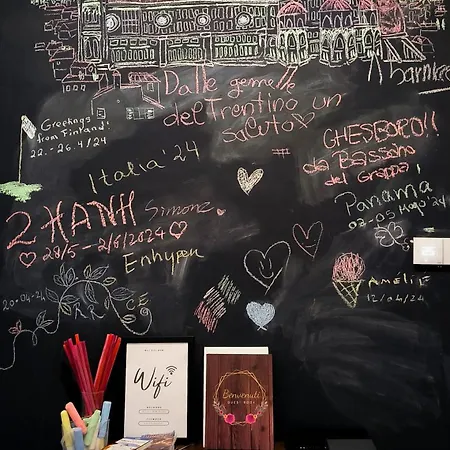 Dalle gemelle
del Trentino un
saluto
Greetings
from Finland!
22.-26.4/24
GHESBORO!!
da Bassano
del Grappa!
Italia '24
Panama
02-05 Mayo '24
2HANH
Simone
28/5-2/6/2024
Enhypen
AMELIE
12/04/24
20-04-24
Wifi
Benvenuti